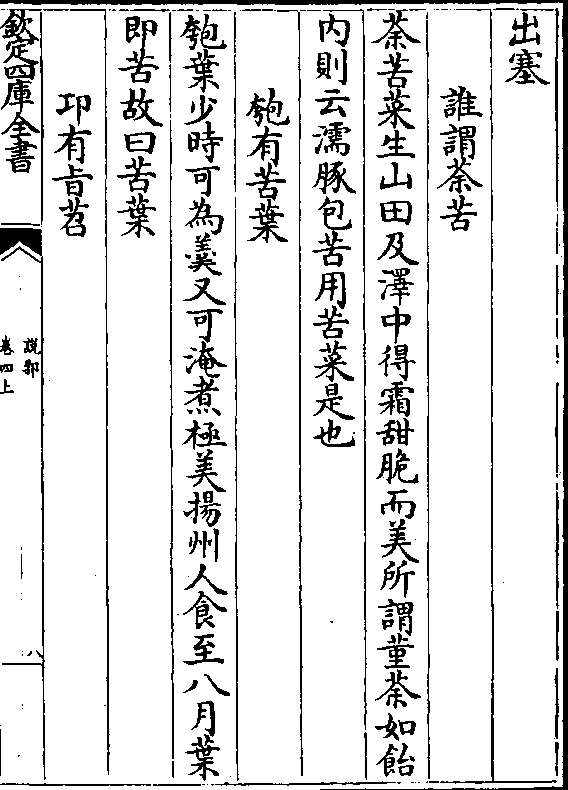 出塞
誰謂荼苦
荼苦菜生山田及澤中得霜甜脆而美所謂堇荼如飴
内則云濡豚包苦用苦菜是也
匏有苦葉
匏葉少時可為羹又可淹煮極美揚州人食至八月葉
即苦故曰苦葉
卭有旨苕
欽定四庫全書
說郛
卷四上
八